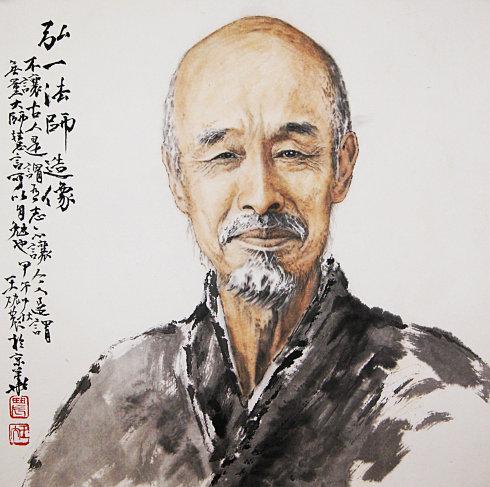 弘一法師造像
不讓古人是謂有志不讓今人是謂
無量大師慧言可以自勉也甲午
王農於京華